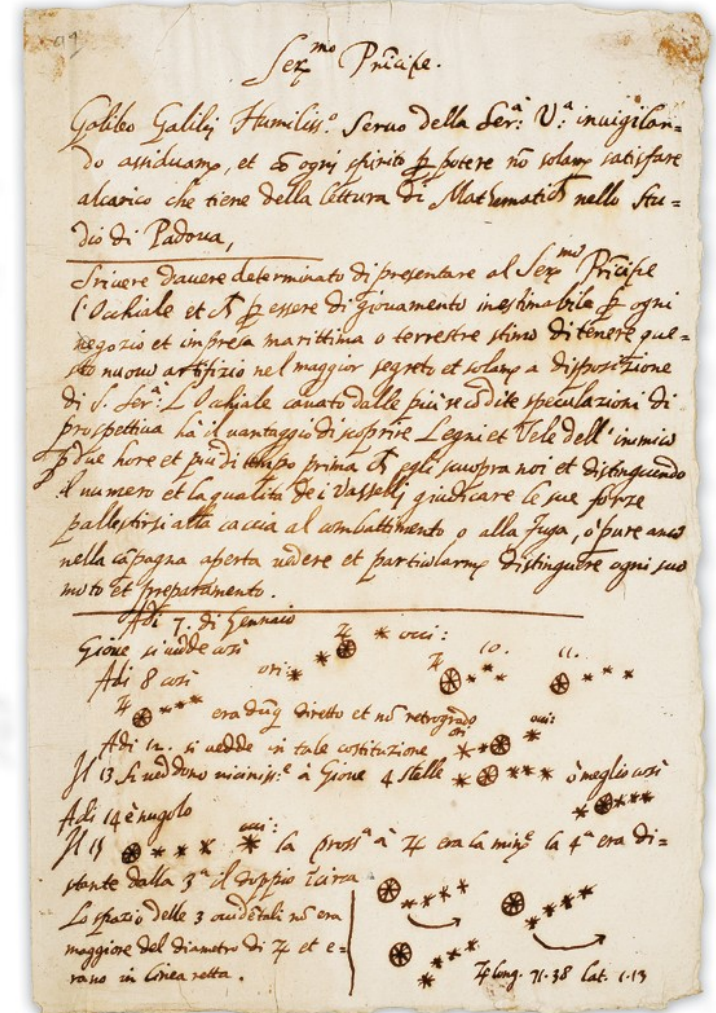 99
Ser.mo Prĩcipe.
Galileo Galilej Humiliss.o Seruo della Ser:a V:a inuigilan=
do assiduam.e, et cõ ogni spirito p potere nõ solam.e satisfare
alcarico che tiene della lettura di Mathematich nello Stu=
dio di Padoua,
Scriuere dauere determinato di presentare al Ser.mo Prĩcipe
l'Occhiale et p essere di giouamento inestimabile p ogni
negozio et impresa marittima o terrestre stimo di tenere que=
sto nuouo artifizio nel maggior segreto et solam.e a disposizione
di S. Ser:a L'Occhiale cauato dalle più recõdite speculazioni di
prospettiua hà il uantaggio di scoprire Legni et Vele dell'inimico
p due hore et più di tempo prima egli scuopra noi et distinguendo
il numero et la qualità de i Vasselli giudicare le sue forze
pallestirsi alla caccia al combattimento o alla fuga, ò pure anco
nella cãpagna aperta uedere et particularm.e distinguere ogni suo
moto et preparamento.
Adi 7. di Gennaio
Gione si uedde cosi ♃ * occi:
Adi 8 così ori: * ♃ 10. 11.
♃ *** era dũq diretto et nõ retrogrado
Adi 12. si uedde in tale costituzione ori * * * occi:
Il 13 si ueddono uiciniss:e à Gioue 4 stelle * *** ò meglio così
Adi 14 è nugolo * ***
Il 15 * * * * occi: la pross.a à ♃ era la min.e la 4.a era di=
stante dalla 3.a il doppio ĩcirca
Lo spazio delle 3 occidẽtali nõ era
maggiore del diametro di ♃ et e=
rano in linea retta.
♃ long. 71.38 lat. 1.13